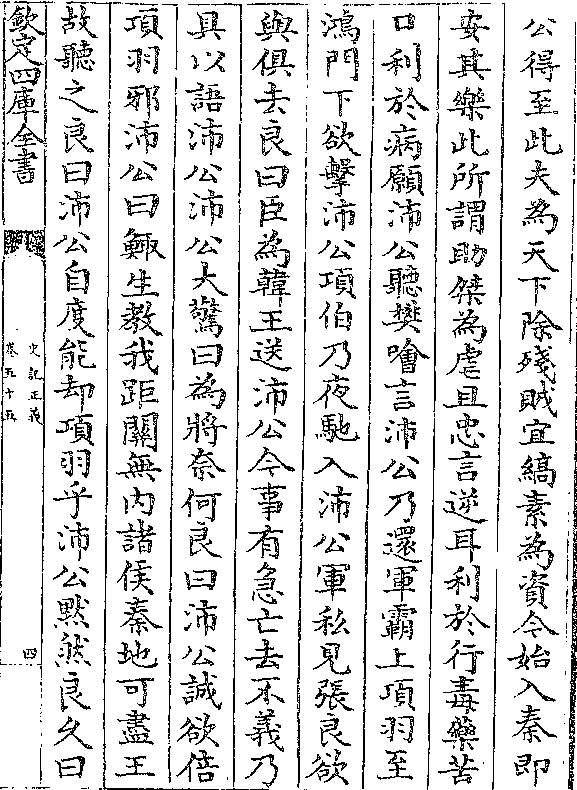 公得至此夫為天下除殘賊宜縞素為資今始入秦即
安其樂此所謂助桀為虐且忠言逆耳利於行毒藥苦
口利於病願沛公聽樊噲言沛公乃還軍霸上項羽至
鴻門下欲擊沛公項伯乃夜馳入沛公軍私見張良欲
與俱去良曰臣為韓王送沛公今事有急亡去不義乃
具以語沛公沛公大驚曰為將奈何良曰沛公誠欲倍
項羽邪沛公曰鯫生教我距關無內諸侯秦地可盡王
故聽之良曰沛公自度能却項羽乎沛公黙然良久曰
欽定四庫全書
史記正義
卷五十五
四